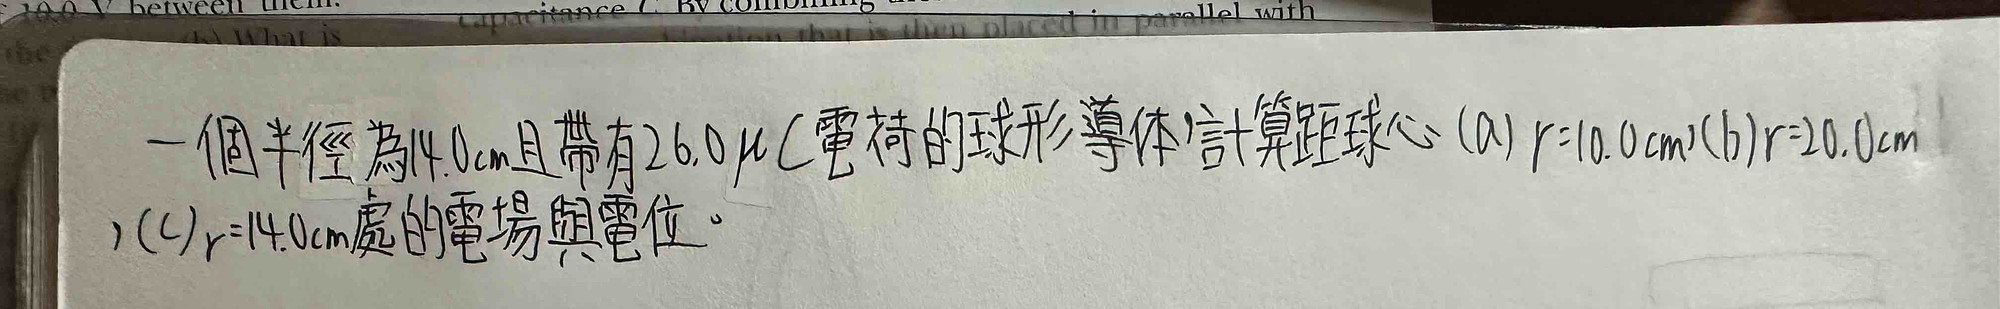 10.0 V between them.
capacitance C. By combining
the
(b) What is
that is then placed in parallel with
一個半徑為14.0cm且帶有26.0μC電荷的球形導体,計算距球心(a) r=10.0cm,(b)r=20.0cm
,(c)r=14.0cm處的電場與電位。